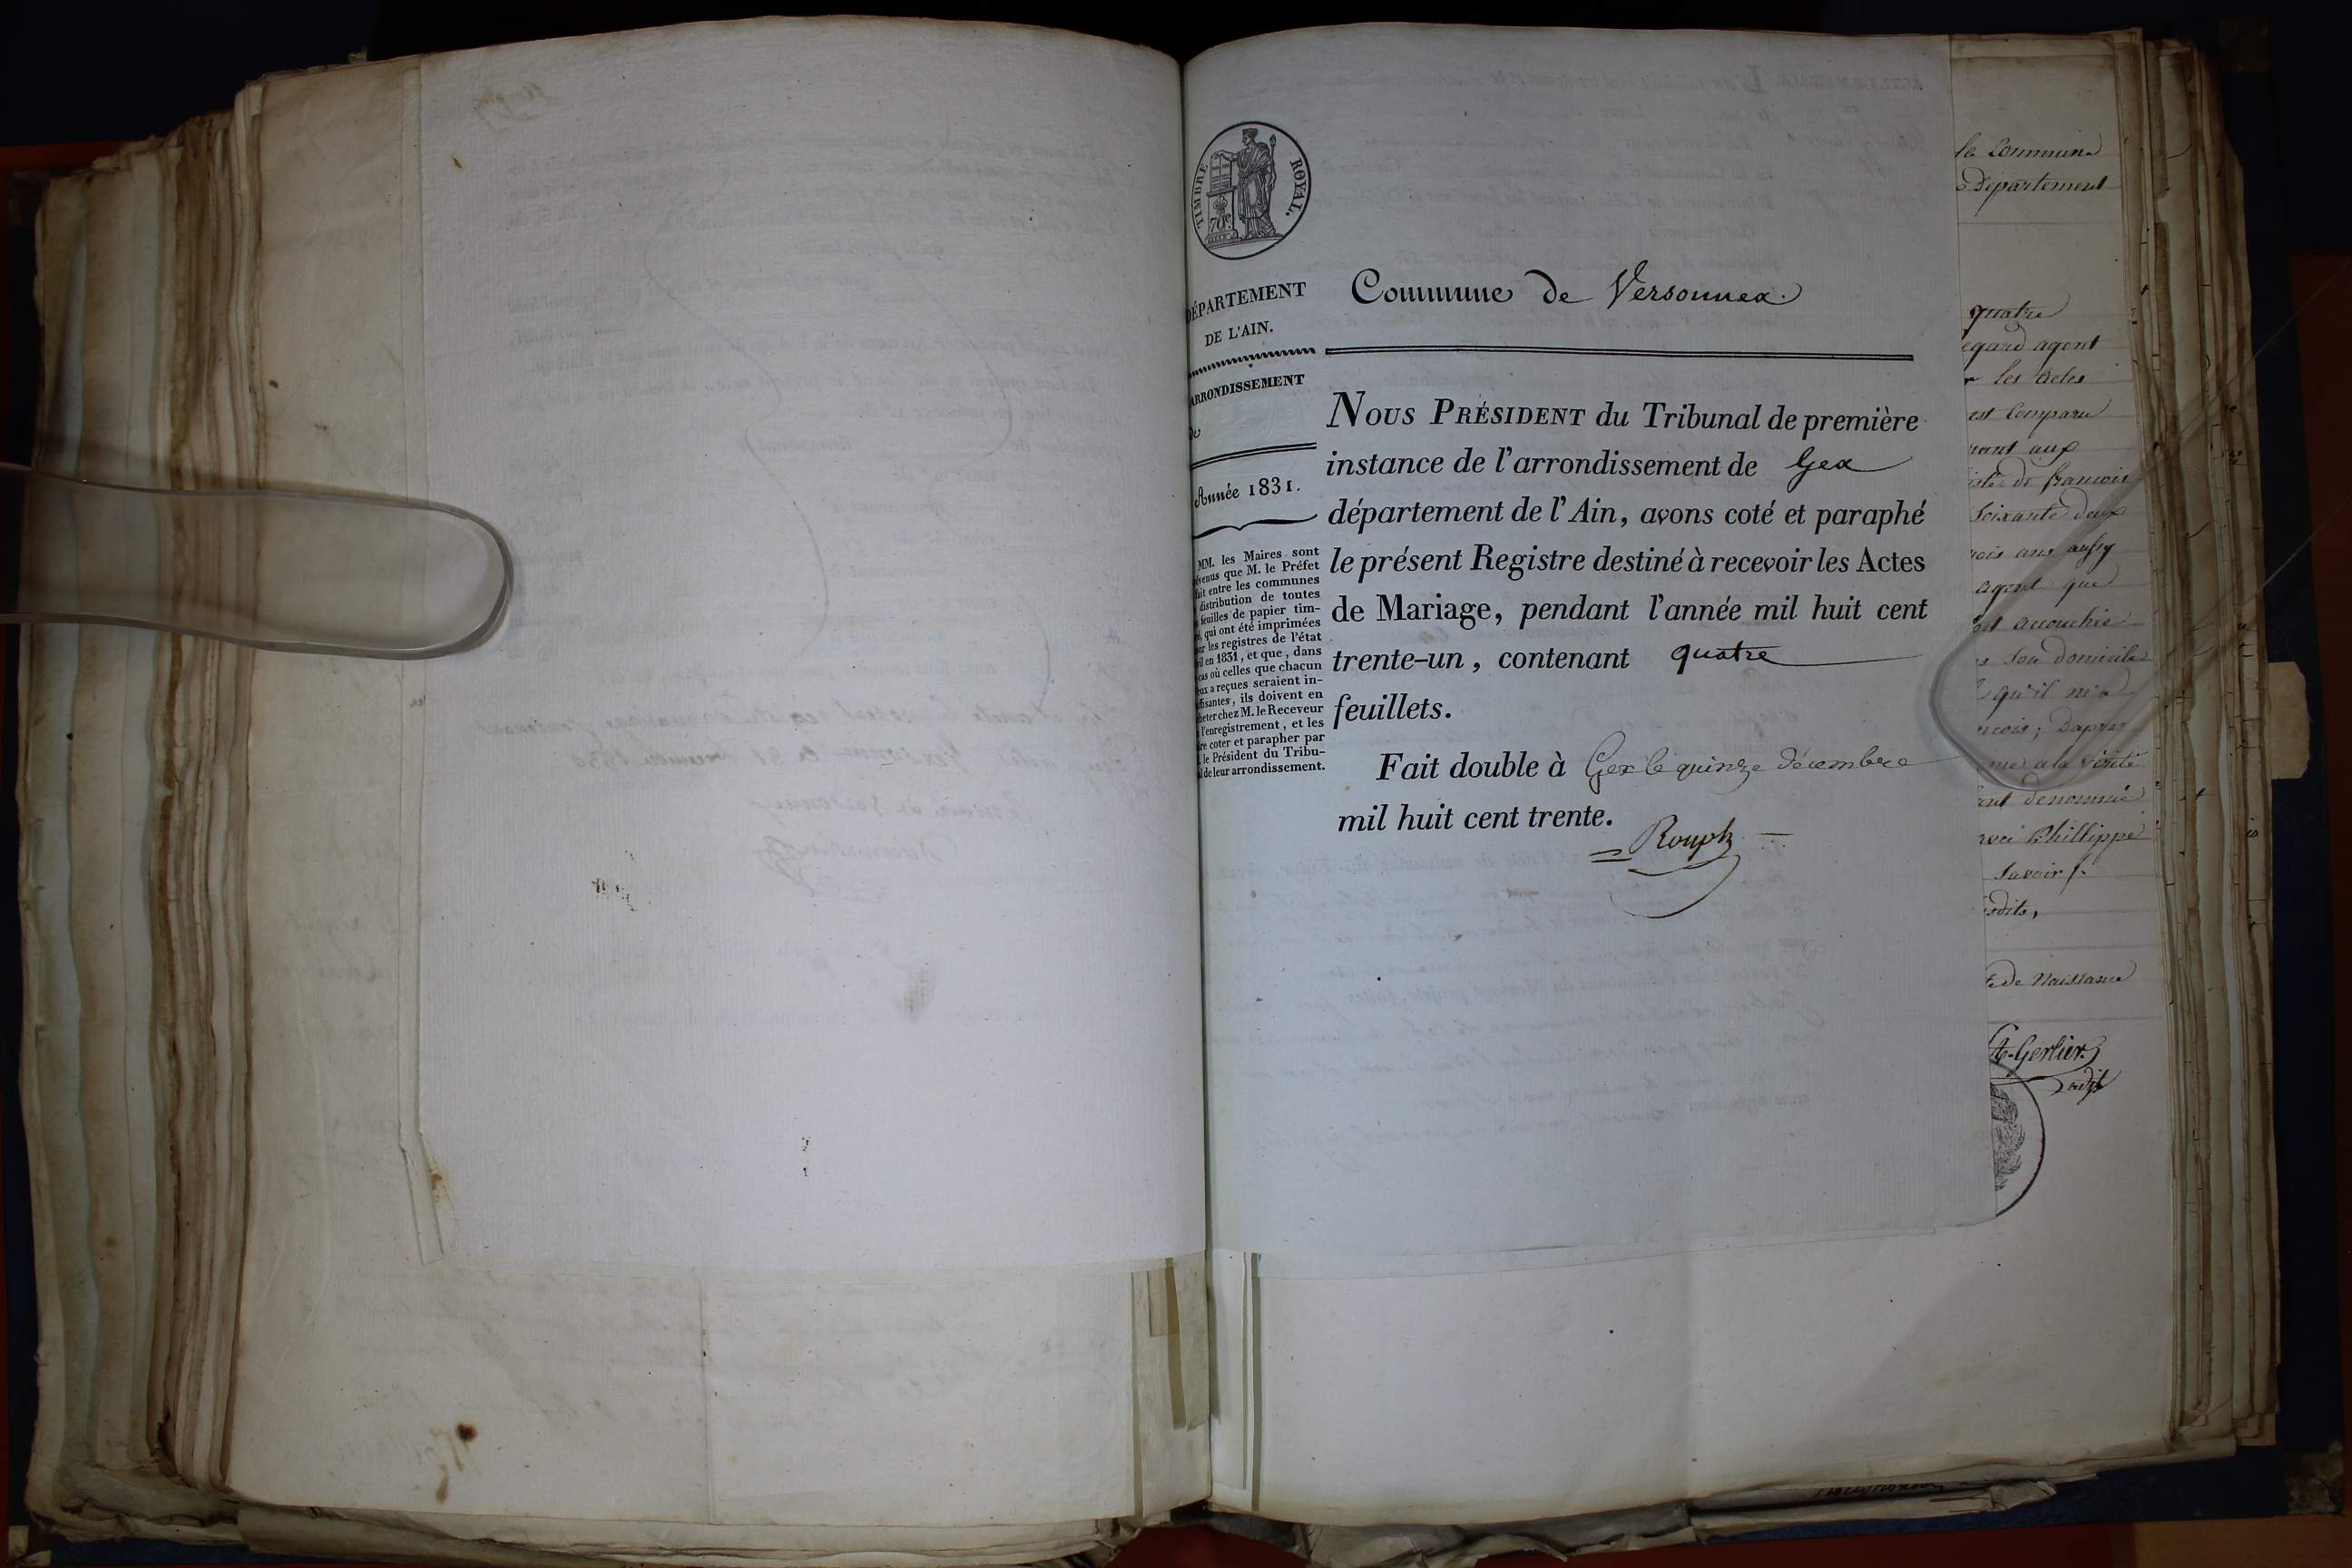 TIMBRE ROYAL.
70c
DÉPARTEMENT
DE L'AIN.
ARRONDISSEMENT
de
Année 1831.
MM. les Maires sont
venus que M. le Préfet
fait entre les communes
distribution de toutes
feuilles de papier tim-
qui ont été imprimées
les registres de l'état
en 1831, et que, dans
cas où celles que chacun
eux a reçues seraient in-
ffisantes, ils doivent en
heter chez M. le Receveur
l'enregistrement, et les
re coter et parapher par
le Président du Tribu-
de leur arrondissement.
Commune de Versonnex.
NOUS PRÉSIDENT du Tribunal de première
instance de l'arrondissement de Gex
département de l'Ain, avons coté et paraphé
le présent Registre destiné à recevoir les Actes
de Mariage, pendant l'année mil huit cent
trente-un, contenant quatre
feuillets.
Fait double à Gex le quinze décembre
mil huit cent trente.
Rouph
la Commune
Département
quatre
egard agent
les actes
est Comparu
nant aux
iste de francois
Soixante deux
rois ans aussy
agent que
est accouchée
Son domicile
qu'il m'a
ncois; Dapres
me a la Vérité
ent denommé
Phillippe
Savoir f.
sdits,
te de Naissance
Gerlier
adjt